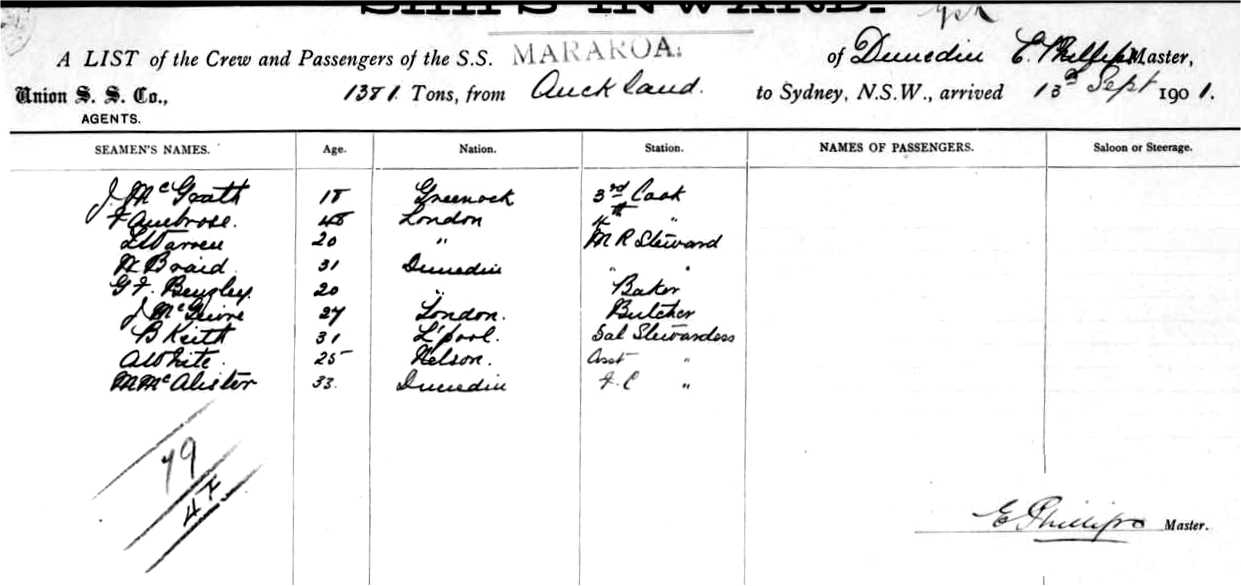 SHIPS INWARD.
A LIST of the Crew and Passengers of the S.S. MARAROA. of Dunedin E. Phillips Master,
Union S. S. Co., 1381 Tons, from Auckland. to Sydney, N.S.W., arrived 13th Sept 1901.
AGENTS.
SEAMEN'S NAMES. Age. Nation. Station. NAMES OF PASSENGERS. Saloon or Steerage.
J. McGrath 18 Greenock 3rd Cook
F Ambrose. 48 London 4th "
L Warren 20 " M R Steward
Braid. 31 Dunedin " "
G F. 20 " Baker
J McGuire 27 London. Butcher
B Keith 31 L'pool. Sal Stewardess
A White. 25 Nelson. Asst "
M McAlister 33. Dunedin F.C "
79
E Phillips Master.